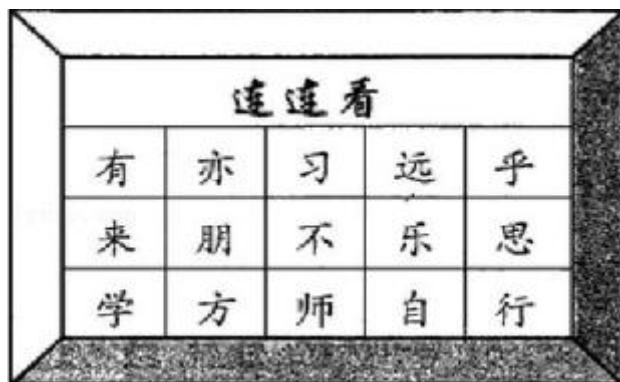 连连看
有 亦 习 远 乎
来 朋 不 乐 思
学 方 师 自 行